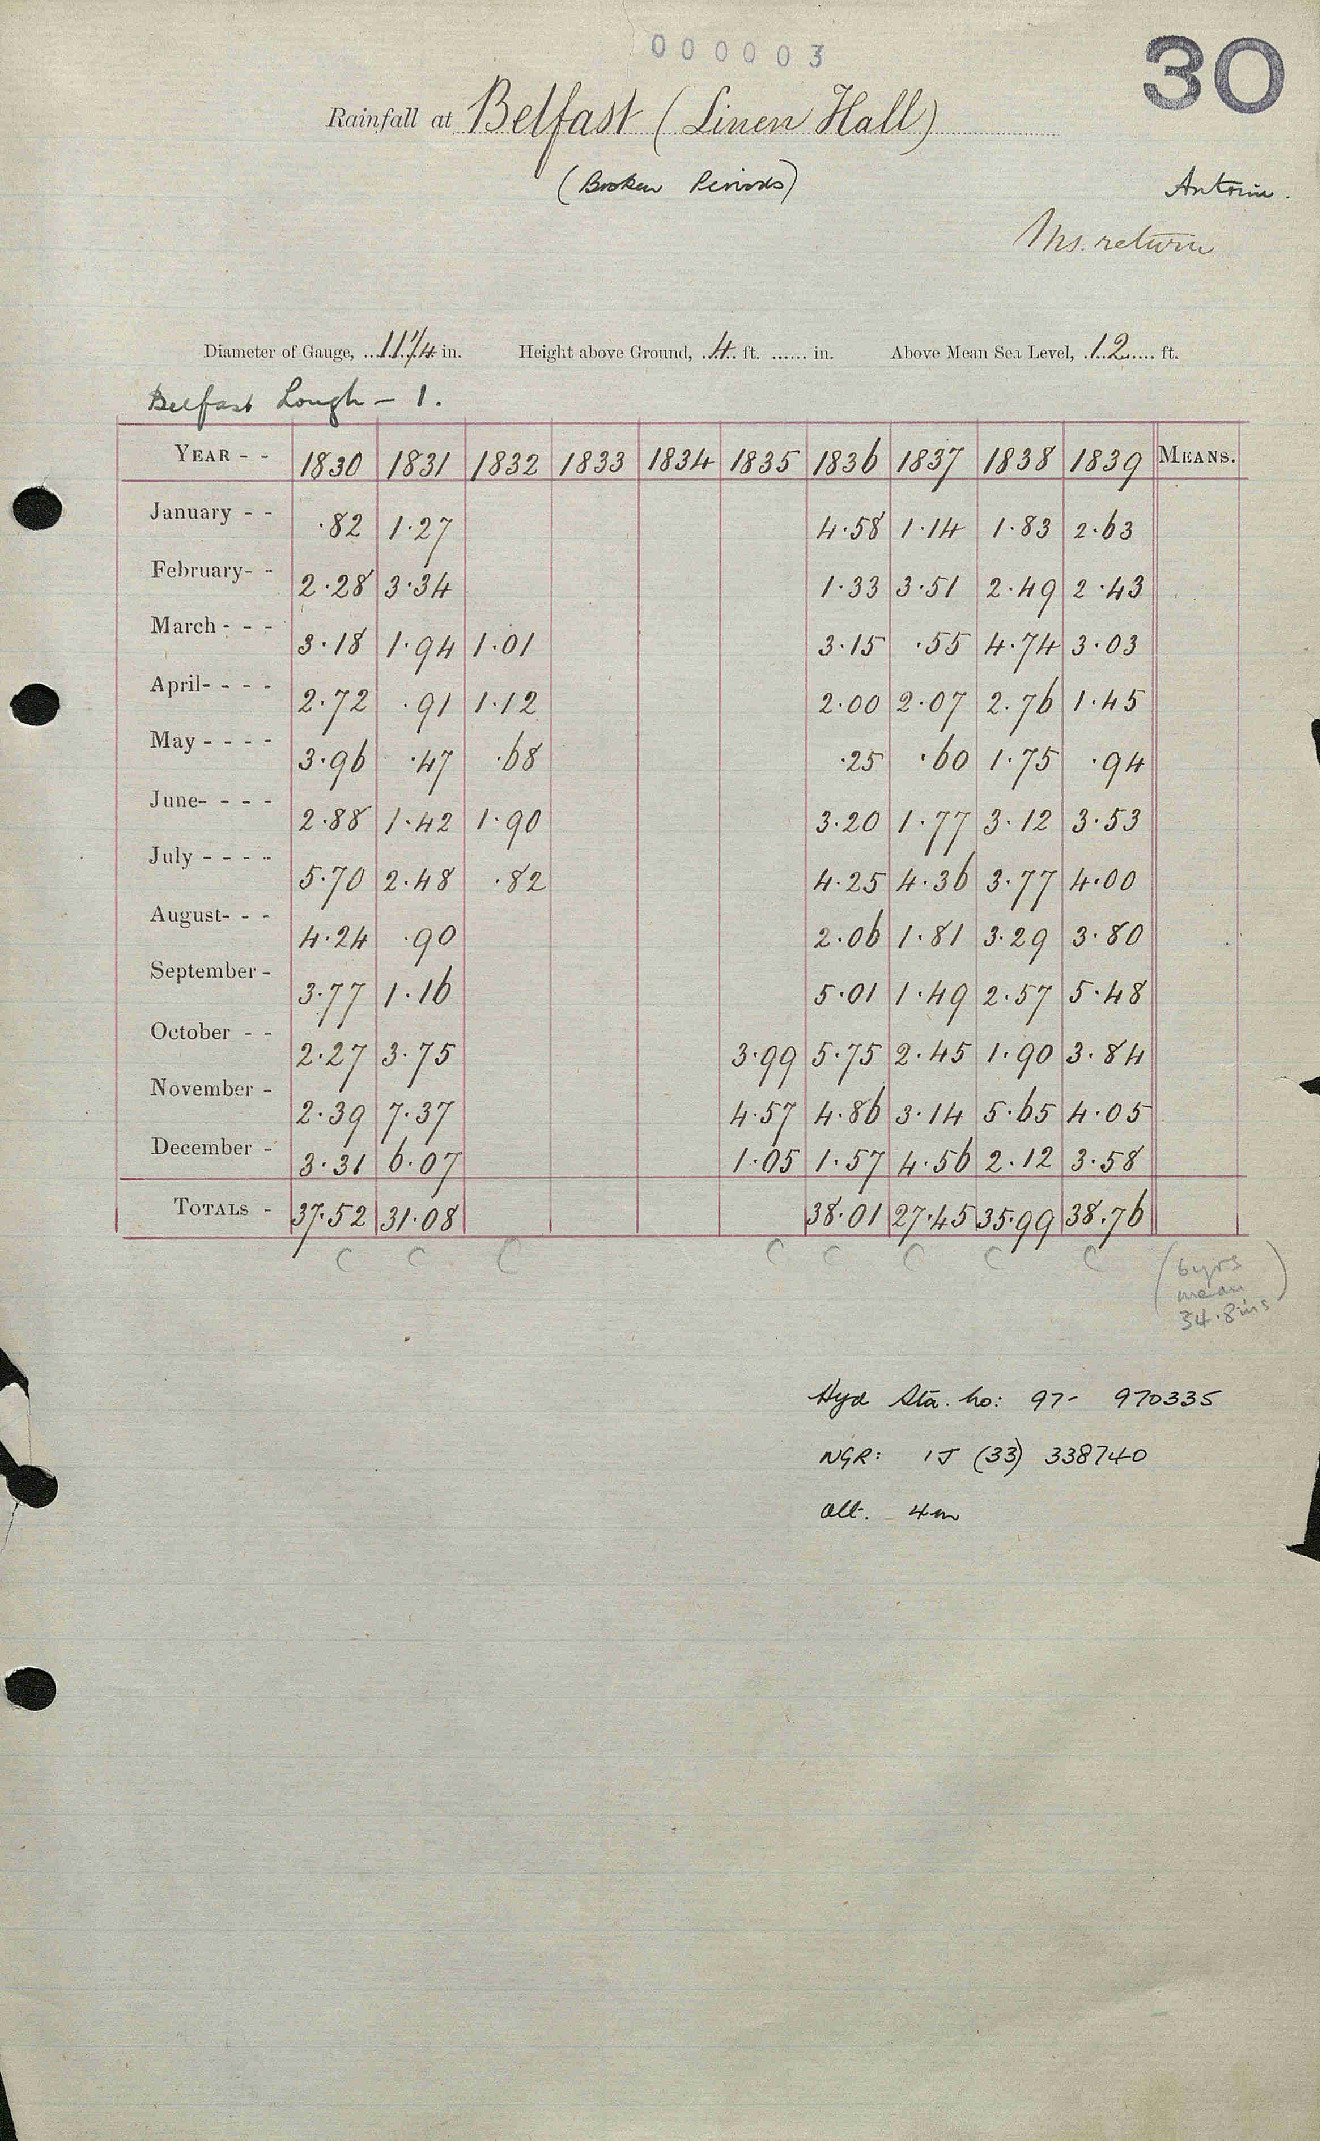 000003
30
Rainfall at Belfast (Linen Hall)
(Broken Periods)
Antrim.
Ms. return
Diameter of Gauge, 11 1/4 in. Height above Ground, 4 ft. ...... in. Above Mean Sea Level, 12 ft.
Belfast Lough - 1.
YEAR - - 1830 1831 1832 1833 1834 1835 1836 1837 1838 1839 MEANS.
January - - ·82 1·27 4·58 1·14 1·83 2·63
February- - 2·28 3·34 1·33 3·51 2·49 2·43
March - - - 3·18 1·94 1·01 3·15 ·55 4·74 3·03
April- - - - 2·72 ·91 1·12 2·00 2·07 2·76 1·45
May - - - - 3·96 ·47 ·68 ·25 ·60 1·75 ·94
June- - - - 2·88 1·42 1·90 3·20 1·77 3·12 3·53
July - - - - 5·70 2·48 ·82 4·25 4·36 3·77 4·00
August- - - 4·24 ·90 2·06 1·81 3·29 3·80
September - 3·77 1·16 5·01 1·49 2·57 5·48
October - - 2·27 3·75 3·99 5·75 2·45 1·90 3·84
November - 2·39 7·37 4·57 4·86 3·14 5·65 4·05
December - 3·31 6·07 1·05 1·57 4·56 2·12 3·58
TOTALS - 37·52 31·08 38·01 27·45 35·99 38·76
C C C C C C C C
(6yrs
mean
34·8ins)
Hyd Sta. no: 97- 970335
NGR: IJ (33) 338740
alt. 4m